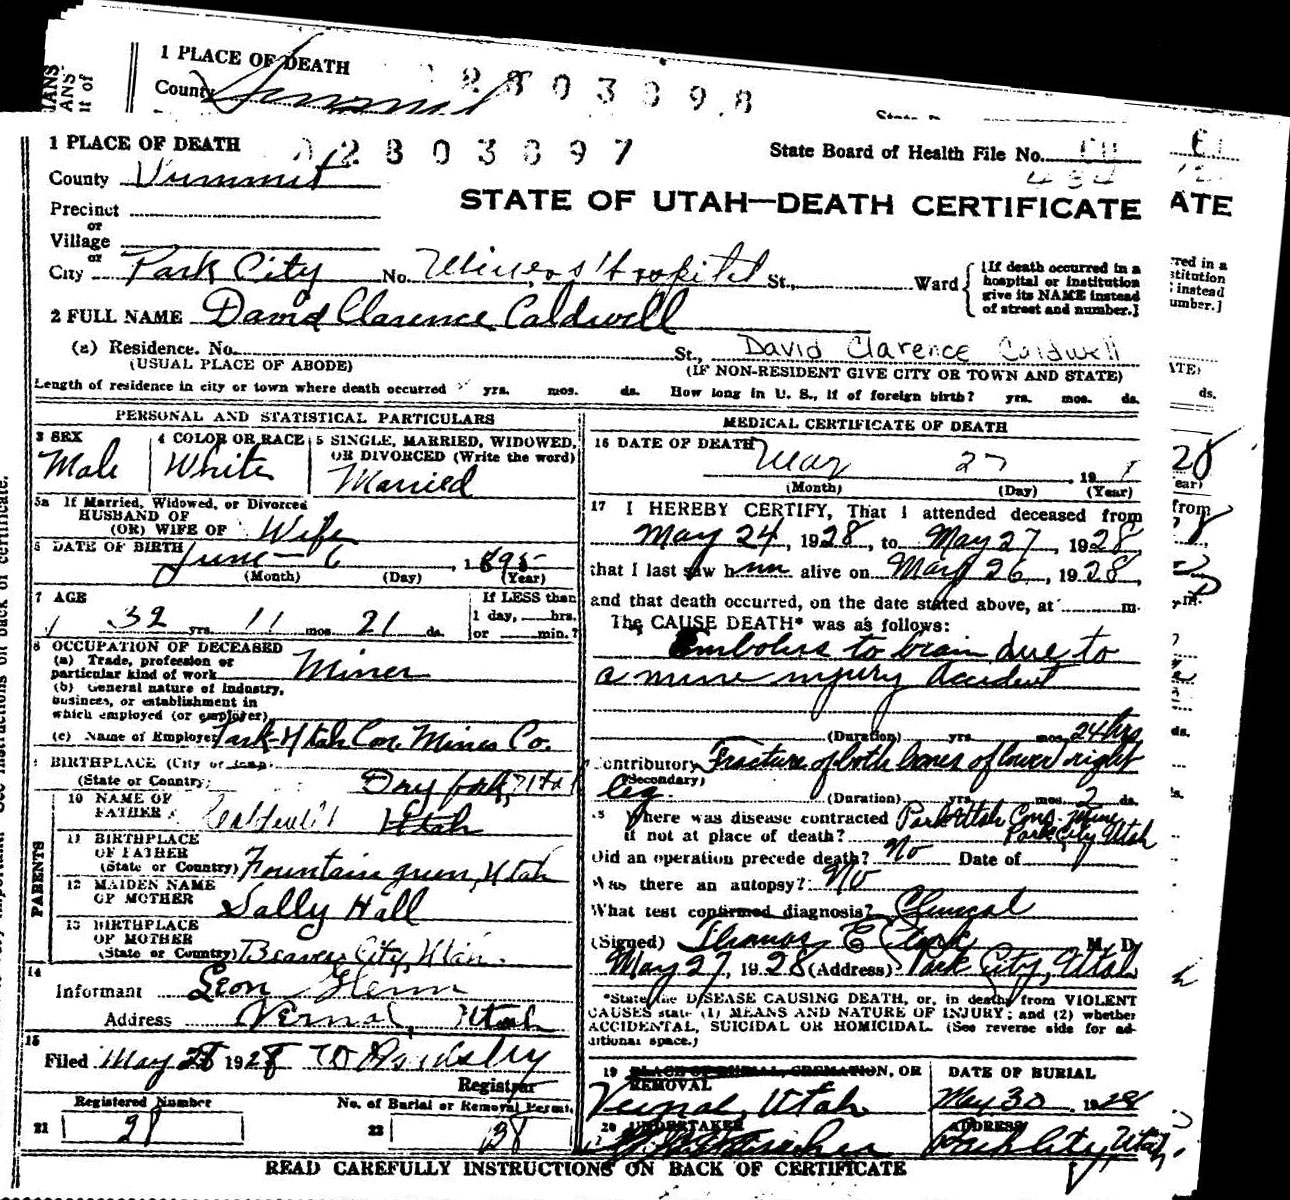 1 PLACE OF DEATH
County Summit
2803898
1 PLACE OF DEATH
2803897
State Board of Health File No.
County Summit
STATE OF UTAH—DEATH CERTIFICATE
ATE
Precinct
or
Village
or
City Park City No. Miners Hospital St., Ward
[If death occurred in a
hospital or institution
give its NAME instead
of street and number.]
2 FULL NAME David Clarence Caldwell
(a) Residence. No. St., David Clarence Caldwell
(USUAL PLACE OF ABODE) (IF NON-RESIDENT GIVE CITY OR TOWN AND STATE)
Length of residence in city or town where death occurred yrs. mos. ds. How long in U. S., if of foreign birth? yrs. mos. ds.
PERSONAL AND STATISTICAL PARTICULARS
3 SEX
Male
4 COLOR OR RACE
White
5 SINGLE, MARRIED, WIDOWED,
OR DIVORCED (Write the word)
Married
5a If Married, Widowed, or Divorced
HUSBAND OF
(OR) WIFE OF Wife
6 DATE OF BIRTH June 6, 1895
(Month) (Day) (Year)
7 AGE
32 yrs. 11 mos. 21 ds.
If LESS than
1 day, hrs.
or min.?
8 OCCUPATION OF DECEASED
(a) Trade, profession or
particular kind of work Miner
(b) General nature of industry,
business, or establishment in
which employed (or employer)
(c) Name of Employer Park-Utah Con. Mines Co.
BIRTHPLACE (City or
(State or Country) Dry fork, Utah
10 NAME OF
FATHER Caldwell Utah
11 BIRTHPLACE
OF FATHER
(State or Country) Fountain green, Utah
12 MAIDEN NAME
OF MOTHER Sally Hall
13 BIRTHPLACE
OF MOTHER
(State or Country) Beaver City, Utah.
PARENTS
14
Informant Leon
Address Vernal, Utah
15
Filed May 28 1928
Registrar
Registered Number
21 28
No. of Burial or Removal Permit.
22 38
MEDICAL CERTIFICATE OF DEATH
16 DATE OF DEATH May 27, 19
(Month) (Day) (Year)
17 I HEREBY CERTIFY, That I attended deceased from
May 24, 1928, to May 27, 1928,
that I last saw him alive on May 26, 1928,
and that death occurred, on the date stated above, at m.
The CAUSE DEATH* was as follows:
Embolus to brain due to
a mine injury Accident
(Duration) yrs. mos. 24 hrs
Contributory Fracture of both bones of lower right
(Secondary) leg
(Duration) yrs. mos. 2 ds.
Where was disease contracted Park Utah Cons. Mine
if not at place of death? Park City Utah
Did an operation precede death? No Date of
Was there an autopsy? No
What test confirmed diagnosis? Clinical
(Signed) Thomas E M. D.
May 27, 1928 (Address) Park City, Utah
*State the DISEASE CAUSING DEATH, or, in deaths from VIOLENT
CAUSES state (1) MEANS AND NATURE OF INJURY; and (2) whether
ACCIDENTAL, SUICIDAL OR HOMICIDAL. (See reverse side for ad-
ditional space.)
19 PLACE OF BURIAL, CREMATION, OR
REMOVAL
Vernal, Utah
DATE OF BURIAL
May 30, 1928
20 UNDERTAKER
ADDRESS
Park City, Utah
READ CAREFULLY INSTRUCTIONS ON BACK OF CERTIFICATE